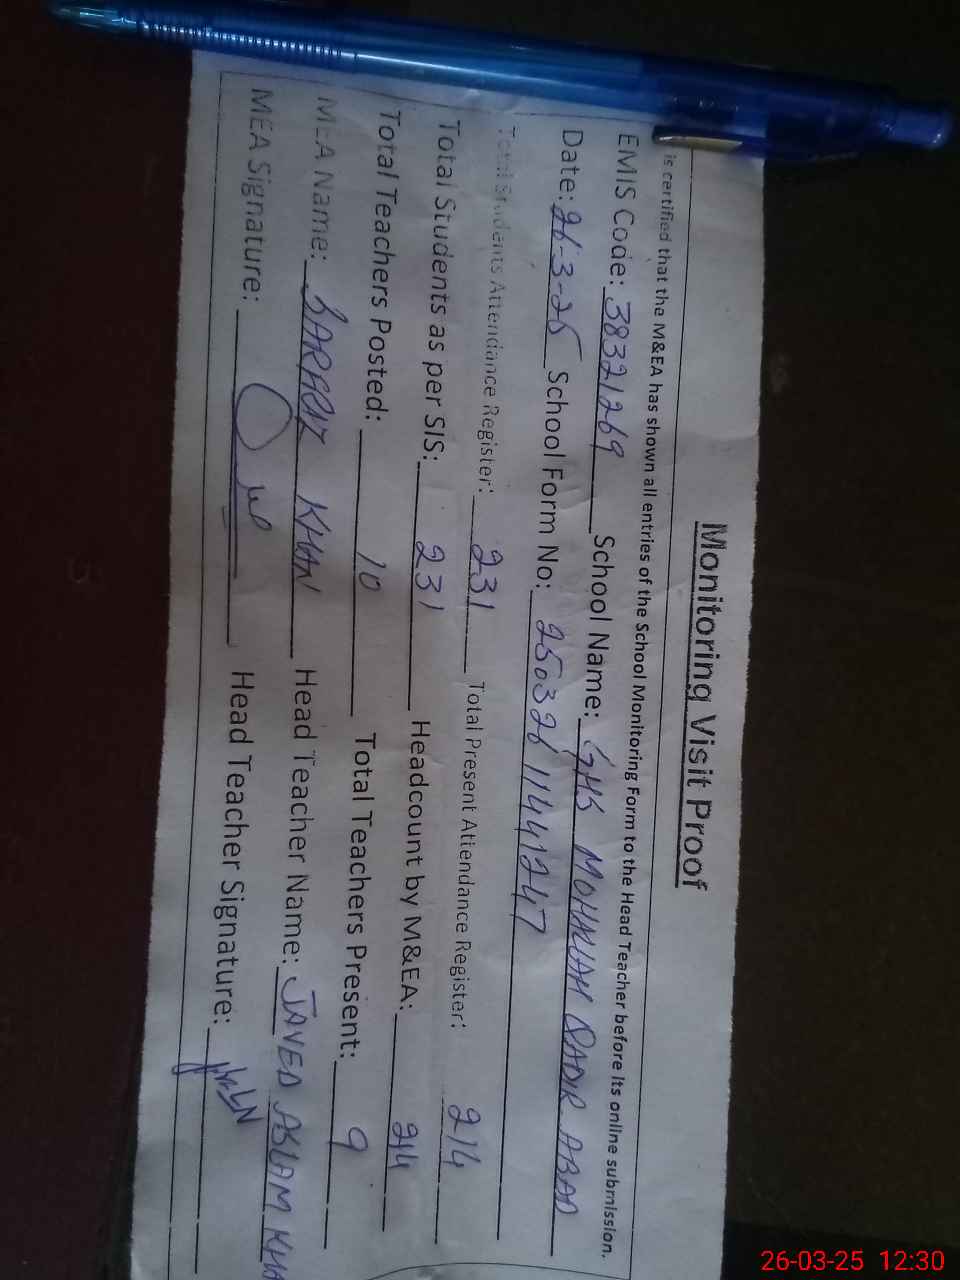 Monitoring Visit Proof
is certified that the M&EA has shown all entries of the School Monitoring Form to the Head Teacher before its online submission.
EMIS Code: 38321269 School Name: GHS MOHALAH QADIR ABAD
Date: 26-3-25 School Form No: 25032611441247
Total Students Attendance Register: 231 Total Present Attendance Register: 214
Total Students as per SIS: 231 Headcount by M&EA: 214
Total Teachers Posted: 10 Total Teachers Present: 9
MEA Name: SARFRAZ KHAN Head Teacher Name: JAVED ASLAM KHA
MEA Signature: Head Teacher Signature:
26-03-25 12:30